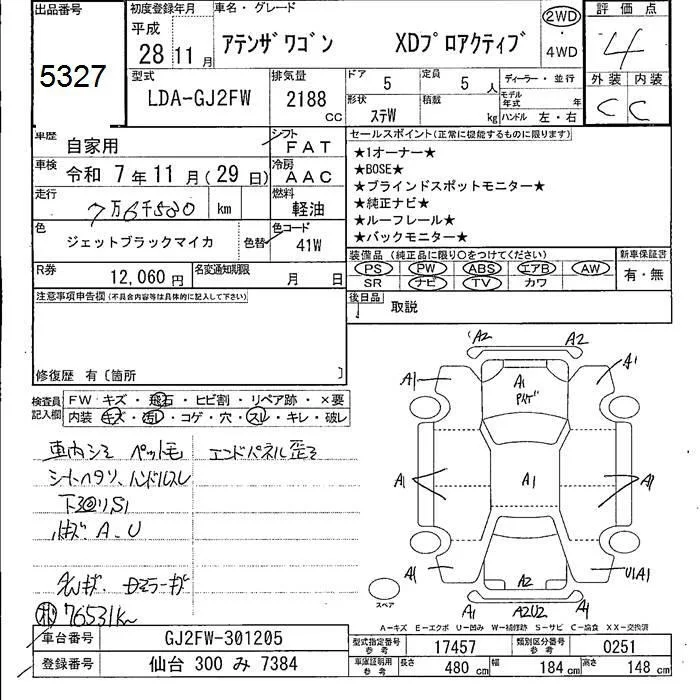 出品番号
5327
初度登録年月
平成
28 11 月
車名・グレード
アテンザワゴン XDプロアクティブ
2WD
・
4WD
評価点
4
外装 内装
C C
型式
LDA-GJ2FW
排気量
2188
CC
ドア
5
定員
5 人
形状
ステW
積載
kg
ディーラー・並行
モデル年式 年
ハンドル 左・右
車歴
自家用
シフト
FAT
車検
令和 7年 11月(29日)
冷房
AAC
走行
7万6千530 km
燃料
軽油
色
ジェットブラックマイカ
色替
色コード
41W
R券
12,060 円
名変通知期限
月 日
セールスポイント(正常に機能するものに限ります)
★1オーナー★
★BOSE★
★ブラインドスポットモニター★
★純正ナビ★
★ルーフレール★
★バックモニター★
装備品(純正品に限り○をつけてください)
PS PW ABS エアB AW
SR ナビ TV カワ
新車保証書
有・無
後日品
取説
注意事項申告欄(不具合内容等は具体的に記入して下さい)
修復歴 有〔箇所 〕
検査員記入欄
FW キズ・飛石・ヒビ割・リペア跡・×要
内装 キズ・汚レ・コゲ・穴・スレ・キレ・破レ
車内シミ ペット毛
エンドパネル歪ミ
シートヘタリ、ハンドルスレ
下回りS1
A、U
76531km
A2 A2
A1 A1 A1
A1 A1 A1
A1 A2 U1A1
A1 A2U2 A1
スペア
A-キズ E-エクボ U-凹み W-補修跡 S-サビ C-腐食 XX-交換済
車台番号
GJ2FW-301205
登録番号
仙台 300 み 7384
型式指定番号
参考
17457
類別区分番号
参考
0251
車庫証明用
参考
長さ
480 cm
幅
184 cm
高さ
148 cm